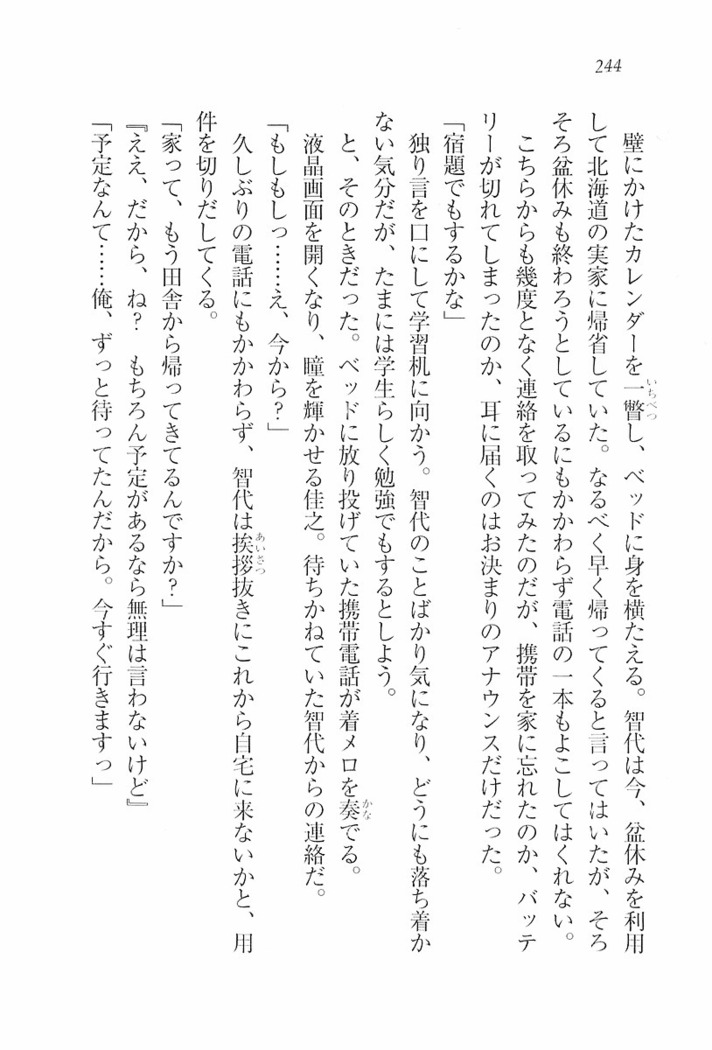 244
壁にかけたカレンダーを一瞥し、ベッドに身を横たえる。智代は今、盆休みを利用
して北海道の実家に帰省していた。なるべく早く帰ってくると言ってはいたが、そろ
そろ盆休みも終わろうとしているにもかかわらず電話の一本もよこしてはくれない。
こちらからも幾度となく連絡を取ってみたのだが、携帯を家に忘れたのか、バッテ
リーが切れてしまったのか、耳に届くのはお決まりのアナウンスだけだった。
「宿題でもするかな」
独り言を口にして学習机に向かう。智代のことばかり気になり、どうにも落ち着か
ない気分だが、たまには学生らしく勉強でもするとしよう。
と、そのときだった。ベッドに放り投げていた携帯電話が着メロを奏でる。
液晶画面を開くなり、瞳を輝かせる佳之。待ちかねていた智代からの連絡だ。
「もしもしっ……え、今から？」
久しぶりの電話にもかかわらず、智代は挨拶抜きにこれから自宅に来ないかと、用
件を切りだしてくる。
「家って、もう田舎から帰ってきてるんですか？」
『ええ、だから、ね？　もちろん予定があるなら無理は言わないけど』
「予定なんて……俺、ずっと待ってたんだから。今すぐ行きますっ」
いちべつ
かな
あいさつ